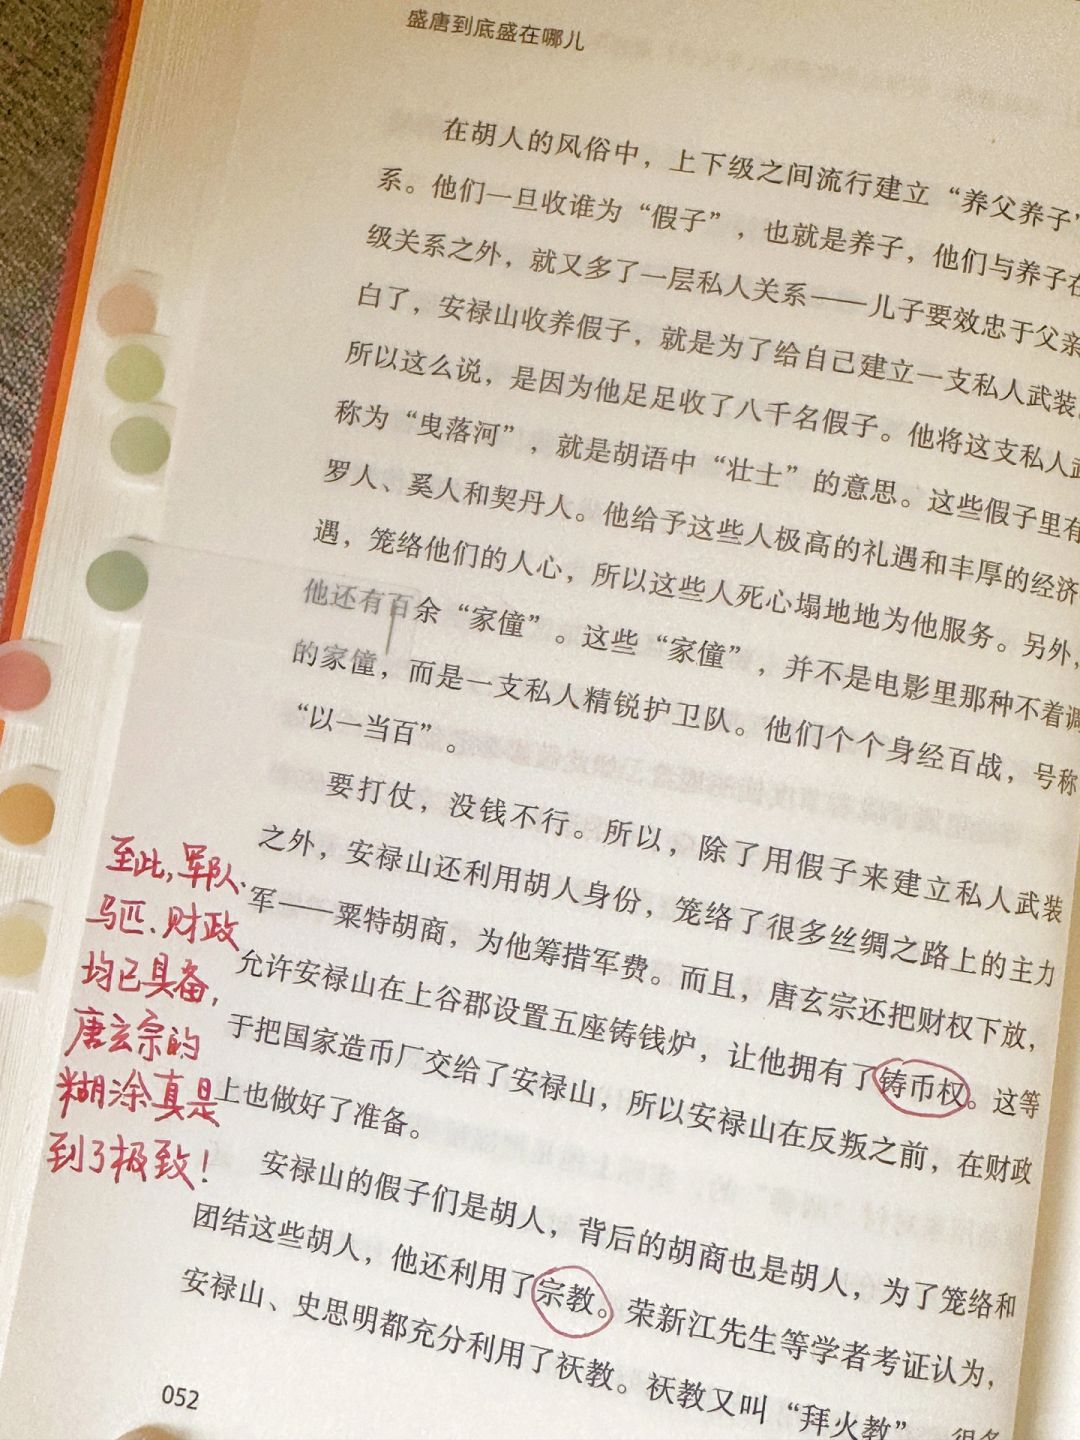 盛唐到底盛在哪儿
在胡人的风俗中，上下级之间流行建立“养父养子”
系。他们一旦收谁为“假子”，也就是养子，他们与养子在
级关系之外，就又多了一层私人关系——儿子要效忠于父亲
白了，安禄山收养假子，就是为了给自己建立一支私人武装
所以这么说，是因为他足足收了八千名假子。他将这支私人武
称为“曳落河”，就是胡语中“壮士”的意思。这些假子里有
罗人、奚人和契丹人。他给予这些人极高的礼遇和丰厚的经济
遇，笼络他们的人心，所以这些人死心塌地地为他服务。另外，
他还有百余“家僮”。这些“家僮”，并不是电影里那种不着调
的家僮，而是一支私人精锐护卫队。他们个个身经百战，号称
“以一当百”。
要打仗，没钱不行。所以，除了用假子来建立私人武装
之外，安禄山还利用胡人身份，笼络了很多丝绸之路上的主力
军——粟特胡商，为他筹措军费。而且，唐玄宗还把财权下放，
允许安禄山在上谷郡设置五座铸钱炉，让他拥有了铸币权。这等
于把国家造币厂交给了安禄山，所以安禄山在反叛之前，在财政
上也做好了准备。
安禄山的假子们是胡人，背后的胡商也是胡人，为了笼络和
团结这些胡人，他还利用了宗教。荣新江先生等学者考证认为，
安禄山、史思明都充分利用了祆教。祆教又叫“拜火教”
052
至此，军队、
马匹、财政
均已具备，
唐玄宗的
糊涂真是
到了极致！